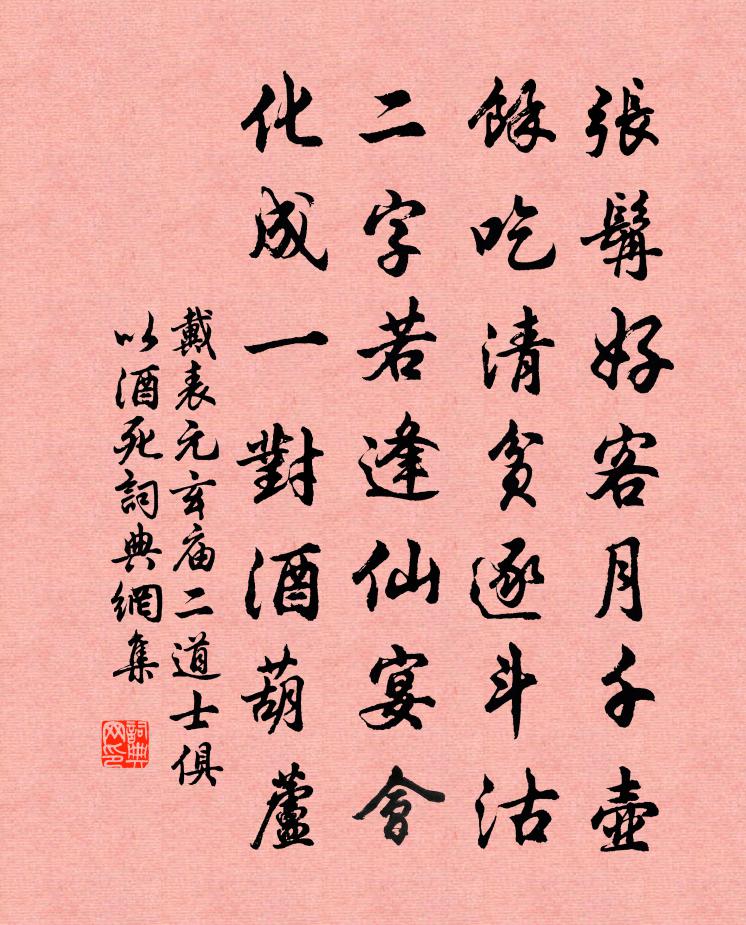 張髯好客月千壺
餘吃清貧逐斗沽
二字若逢仙宴會
化成一對酒葫蘆
戴表元玄庙二道士俱
以酒死詞典網集
詞典网印